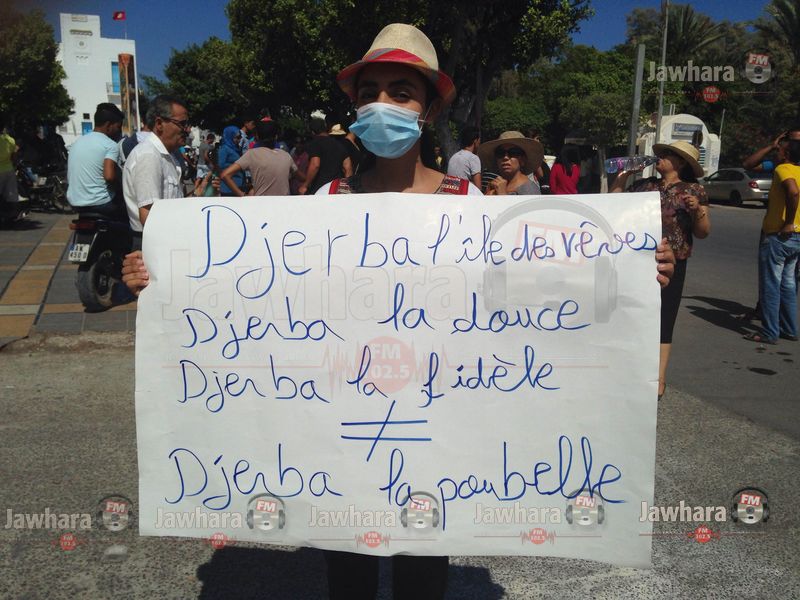 Djerba l'île des rêves
Djerba la douce
Djerba la fidèle
≠
Djerba la poubelle
Jawhara FM
102.5
Jawhara
FM
102.5
Jawhara FM
Jawhara FM
Jawhara FM
Jawhara FM
Jawhara FM